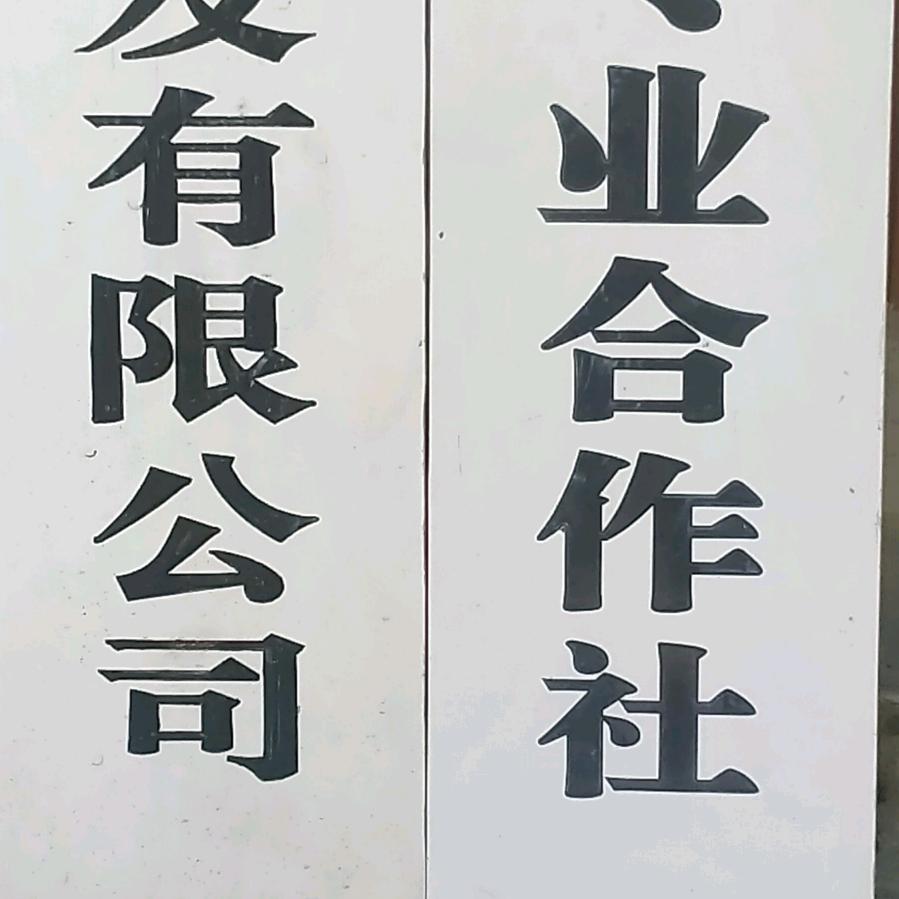 有限公司
业合作社